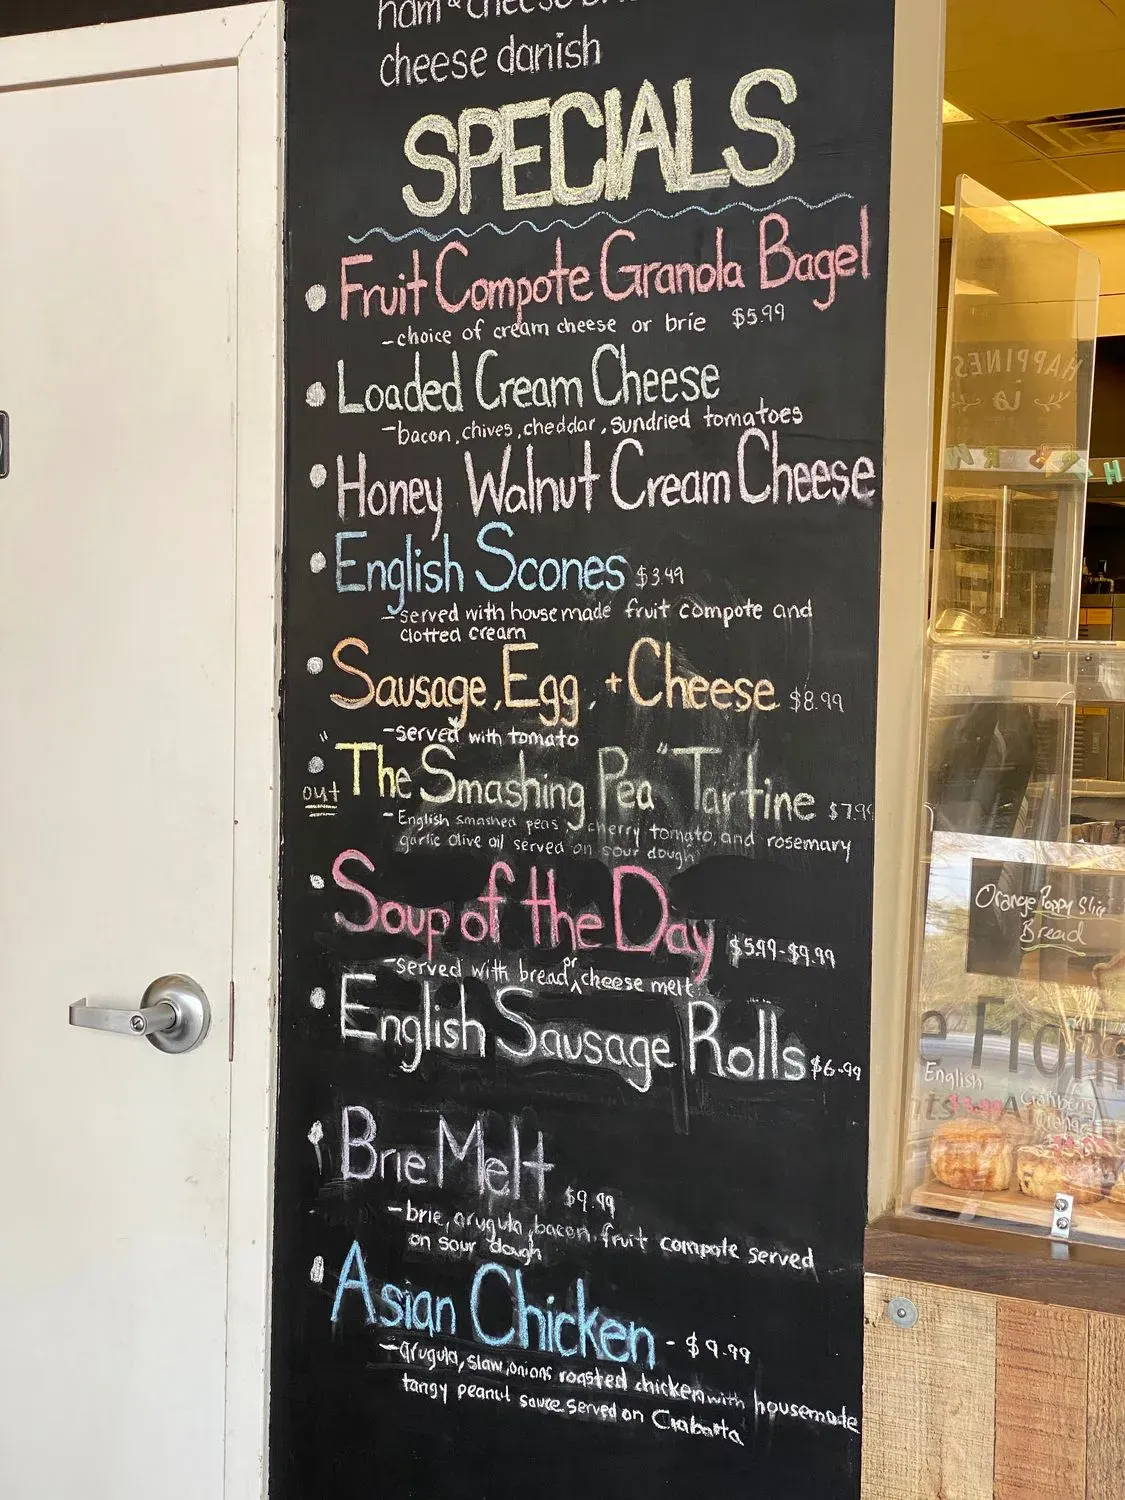 ham & cheese
cheese danish
SPECIALS
• Fruit Compote Granola Bagel
- choice of cream cheese or brie $5.99
• Loaded Cream Cheese
- bacon, chives, cheddar, sundried tomatoes
• Honey Walnut Cream Cheese
• English Scones $3.49
- served with housemade fruit compote and
clotted cream
• Sausage, Egg, + Cheese $8.99
- served with tomato
• "The Smashing Pea" Tartine $7.99
out
- English smashed peas, cherry tomato, and rosemary
garlic olive oil served on sour dough
• Soup of the Day $5.99-$9.99
- served with bread or cheese melt
• English Sausage Rolls $6.99
• Brie Melt $9.99
- brie, arugula, bacon, fruit compote served
on sour dough
• Asian Chicken - $9.99
- arugula, slaw, onions roasted chicken with housemade
tangy peanut sauce served on Ciabatta
HAPPINESS
is
Orange Poppy
Bread
English
$3.99
Orange